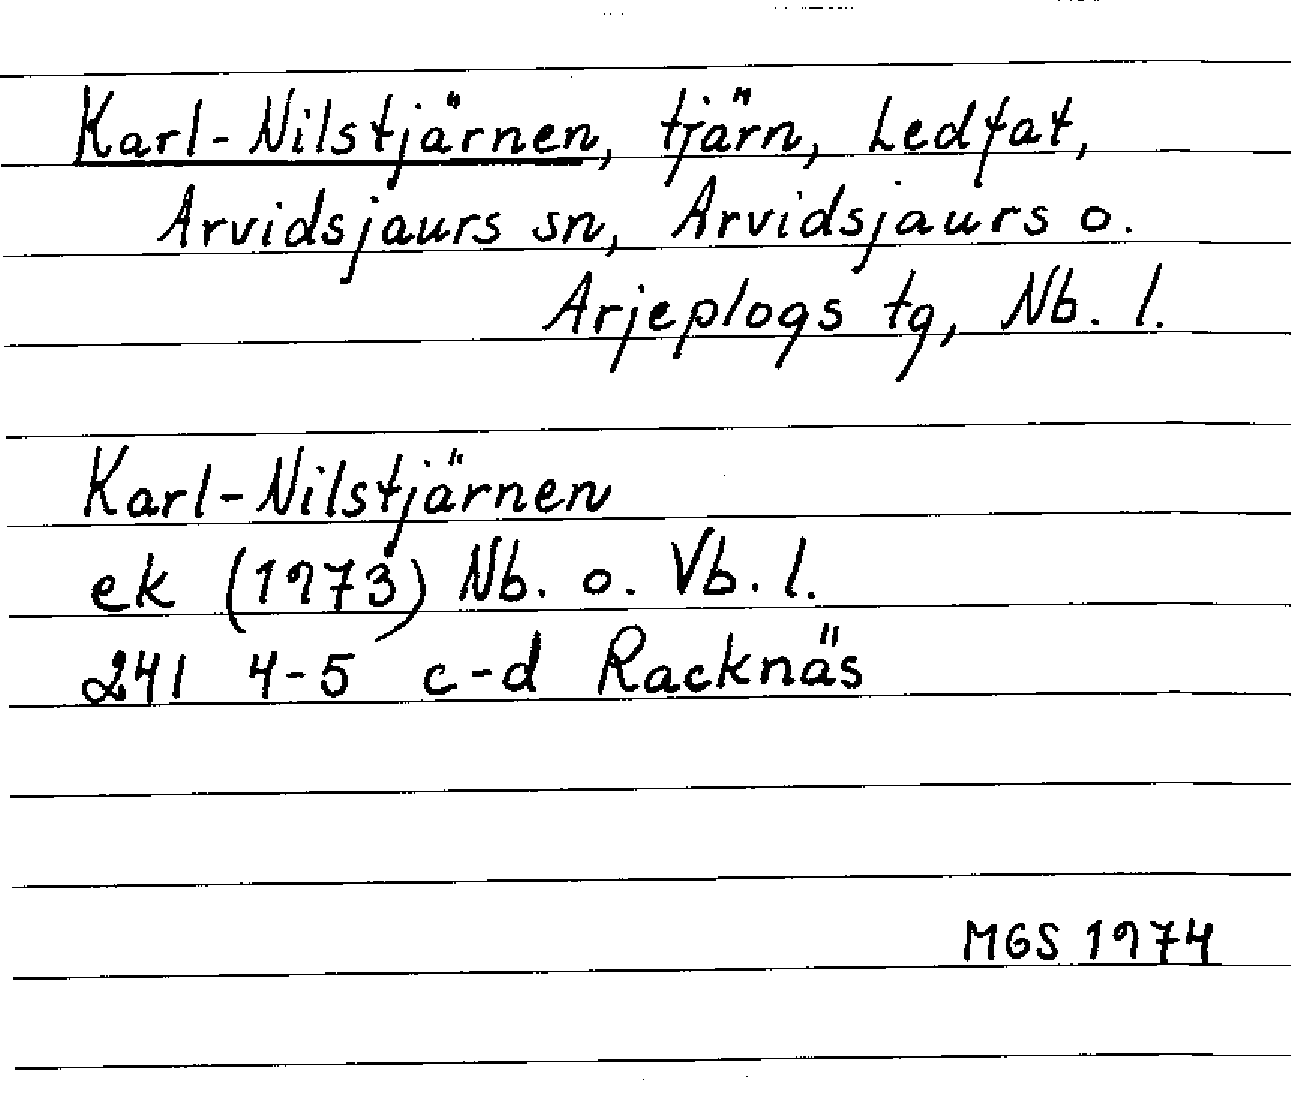 Karl-Nilstjärnen, tjärn, Ledfat,
Arvidsjaurs sn, Arvidsjaurs o.
Arjeplogs tg, Nb. l.
Karl-Nilstjärnen
ek (1973) Nb. o. Vb. l.
241 4-5 c-d Racknäs
MGS 1974